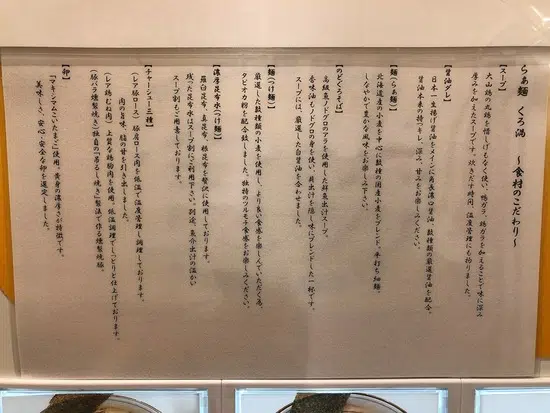 らぁ麺 くろ渦 〜食材のこだわり〜
【スープ】
大山鶏の丸鶏を惜しげもなく使い、鴨ガラ、鶏ガラを加えることで味に深み
厚みを加えたスープです。炊きだす時間、温度管理にも拘りました。
【醤油ダレ】
日本一生揚げ醤油をメインに角長濃口醤油、数種類の厳選醤油を配合。
醤油本来の持つキレ、深み、甘みをお楽しみください。
【麺（らぁ麺）】
北海道産の小麦を中心に数種の国産小麦をブレンド。平打ち細麺。
しなやかで豊かな風味をお楽しみ下さい。
【のどくろそば】
高級魚ノドグロのアラを使用した鮮魚出汁スープ。
香味油もノドグロの身を使い、煮出汁を隠し味にブレンドした一杯です。
スープには、厳選した白醤油を合わせました。
【麺（つけ麺）】
厳選した数種類の小麦を使用し、より良い食感を楽しんでいただく為、
タピオカ粉を配合致しました。独特のツルモチ食感をお楽しみください。
【濃厚昆布水（つけ麺）】
羅臼昆布、真昆布、根昆布を贅沢に使用しております。
残った昆布水はスープ割にご利用下さい。別途、魚介出汁の温かい
スープ割もご用意しております。
【チャーシュー三種】
（レア豚ロース）豚肩ロース肉を低温で温度管理し調理しております。
肉の旨味、脂の甘を引き出しました。
（レア鶏むね肉）上質な鶏胸肉を使用。低温調理でしっとりと仕上げております。
（豚バラ燻製焼き）独自の「吊るし焼き」製法で作る燻製焼豚。
【卵】
「マキシマムこいたまご」使用。黄身の濃厚さが特徴です。
美味しさ、安心・安全な卵を選定しました。